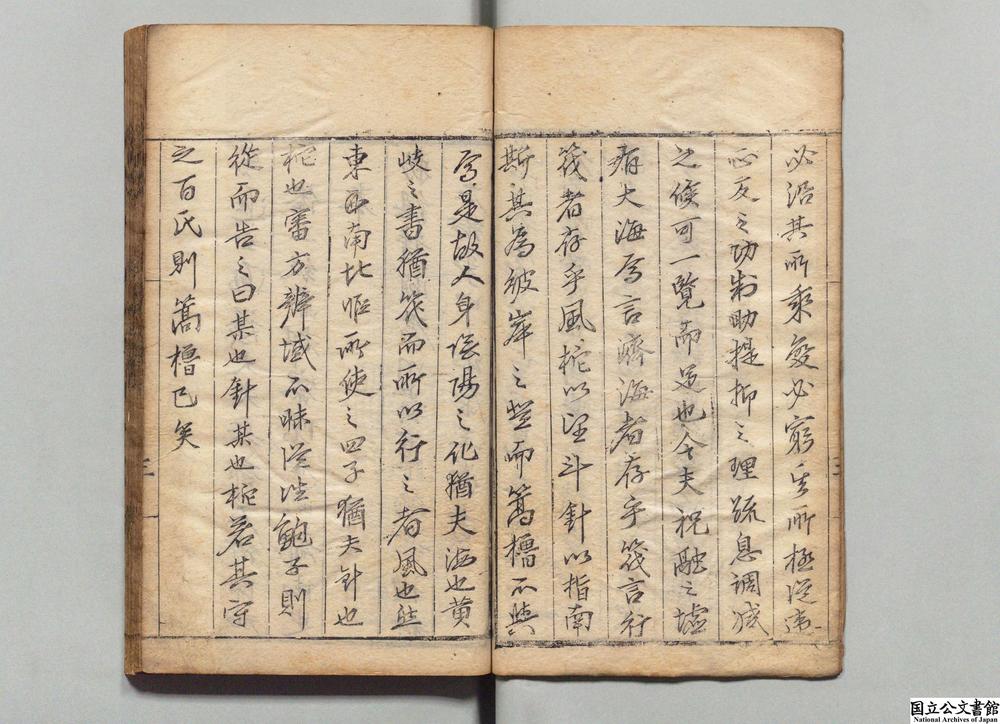 必沿其所乘發必窮其所極從違
正反之功制助提抑之理疏息調減
之候可一覽而逆也今夫祝融之墟
有大海焉言濟海者存乎筏言行
筏者存乎風柁以望斗針以指南
斯其為彼岸之登而篙櫓不與
焉是故人身陰陽之化猶夫海也黃
岐之書猶筏而所以行之者風也然
東西南北惟所使之四子猶夫針也
柁也審方辨域不昧從違鮑子則
從而告之曰某也針某也柁若其守
之百氏則篙櫓已矣
三
三
国立公文書館
National Archives of Japan